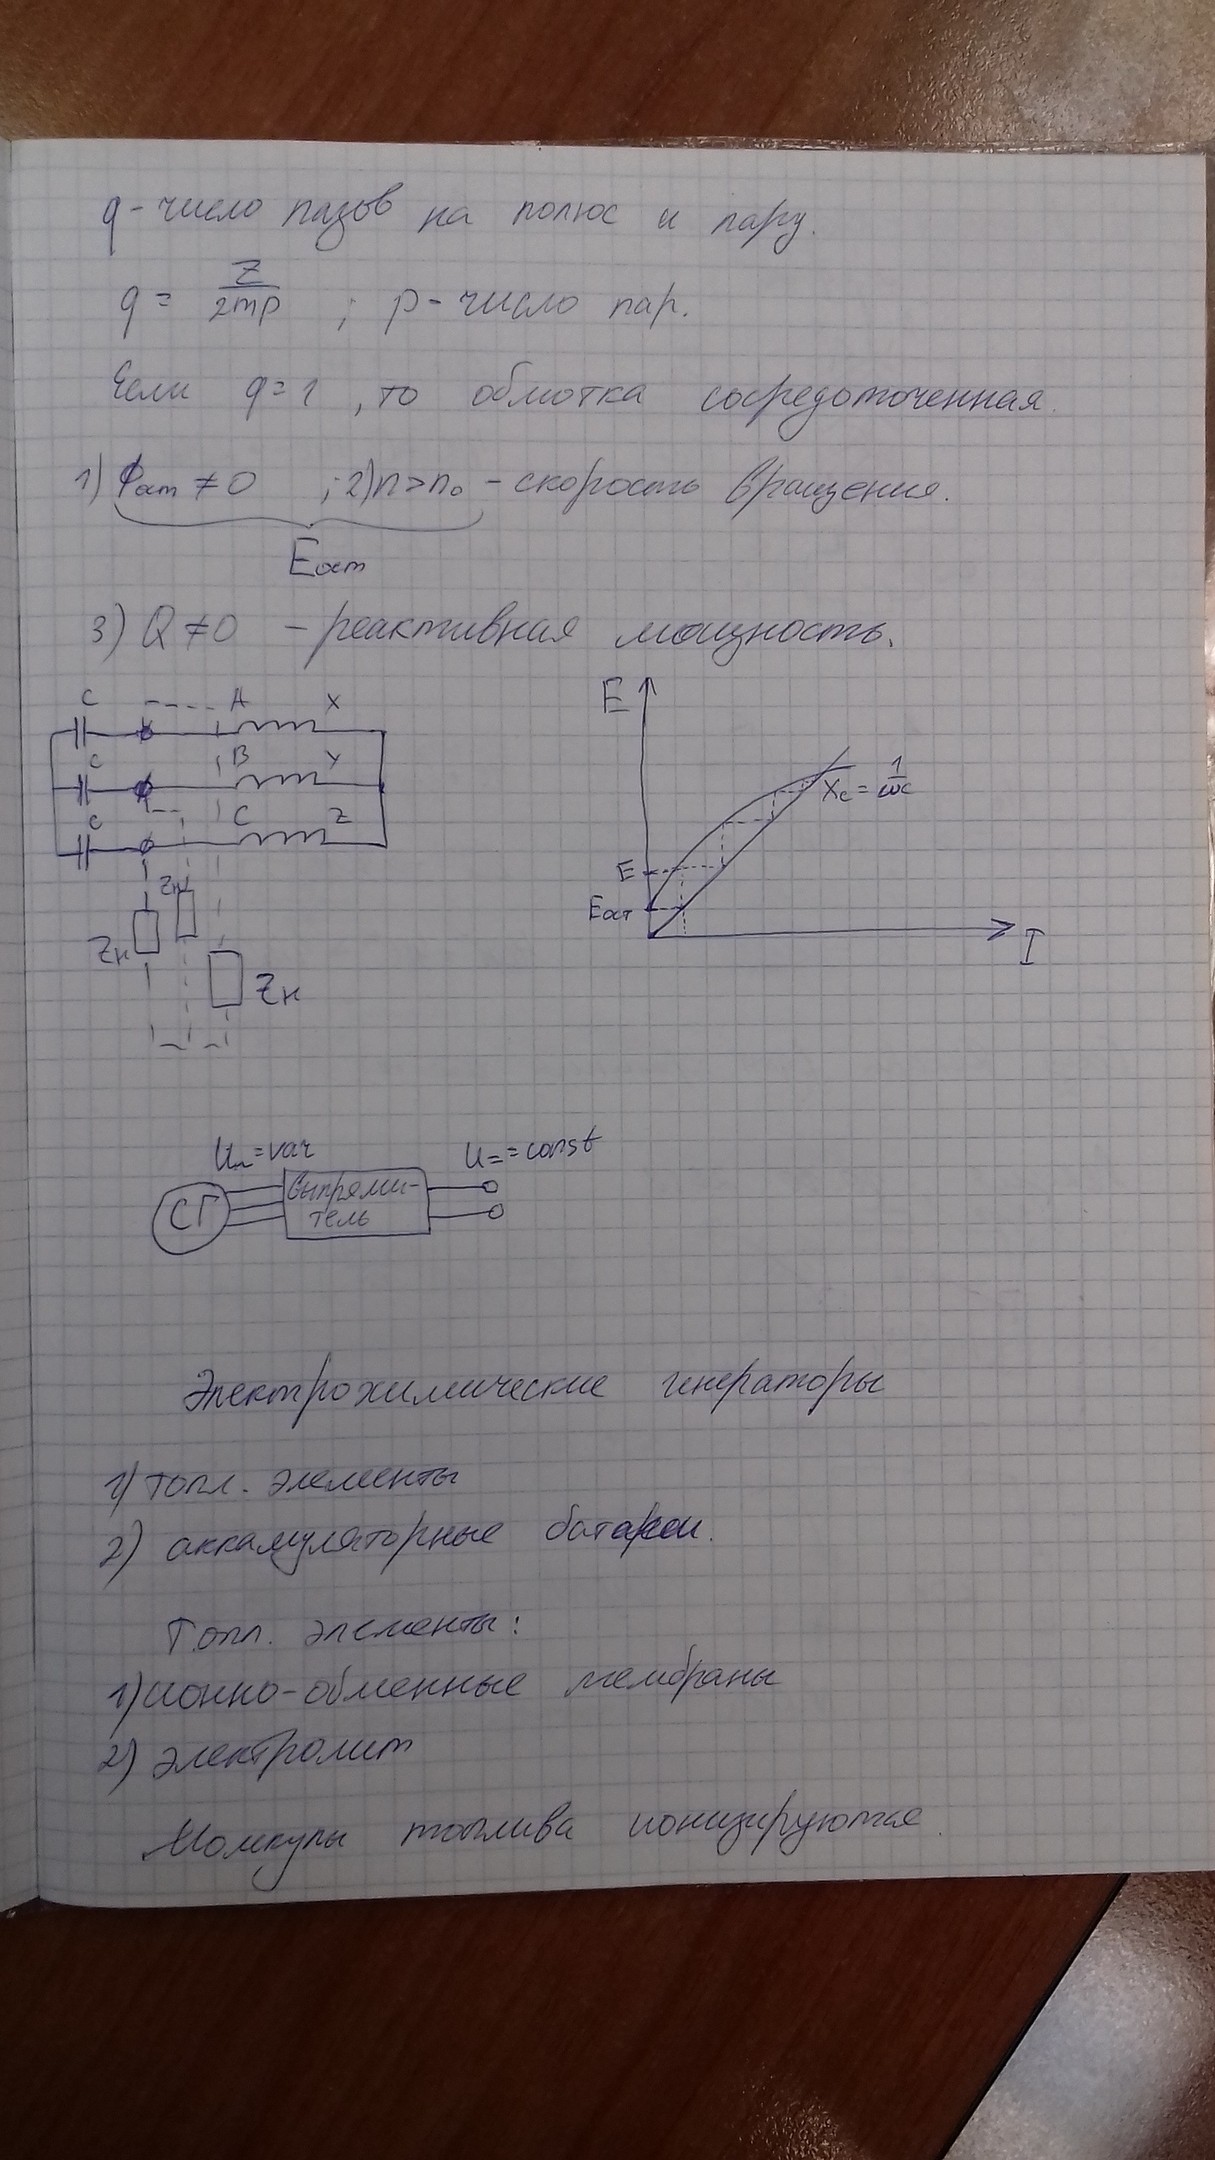 q - число пазов на полюс и пару.
q = Z / 2mp ; p - число пар.
Если q = 1, то обмотка сосредоточенная.
1) Фост ≠ 0 ; 2) n > n₀ - скорость вращения.
Eост
3) Q ≠ 0 - реактивная мощность.
C A X
C B Y
C C Z
Zн
Zн
Zн
E
Xc = 1/ωC
E
Eост
I
U~ = var U= = const
СГ Выпрями-
тель
Электрохимические генераторы
1) топл. элементы
2) аккамуляторные батареи.
Топл. элементы:
1) ионно-обменные мембраны
2) электролит
Молекулы топлива ионизируются.